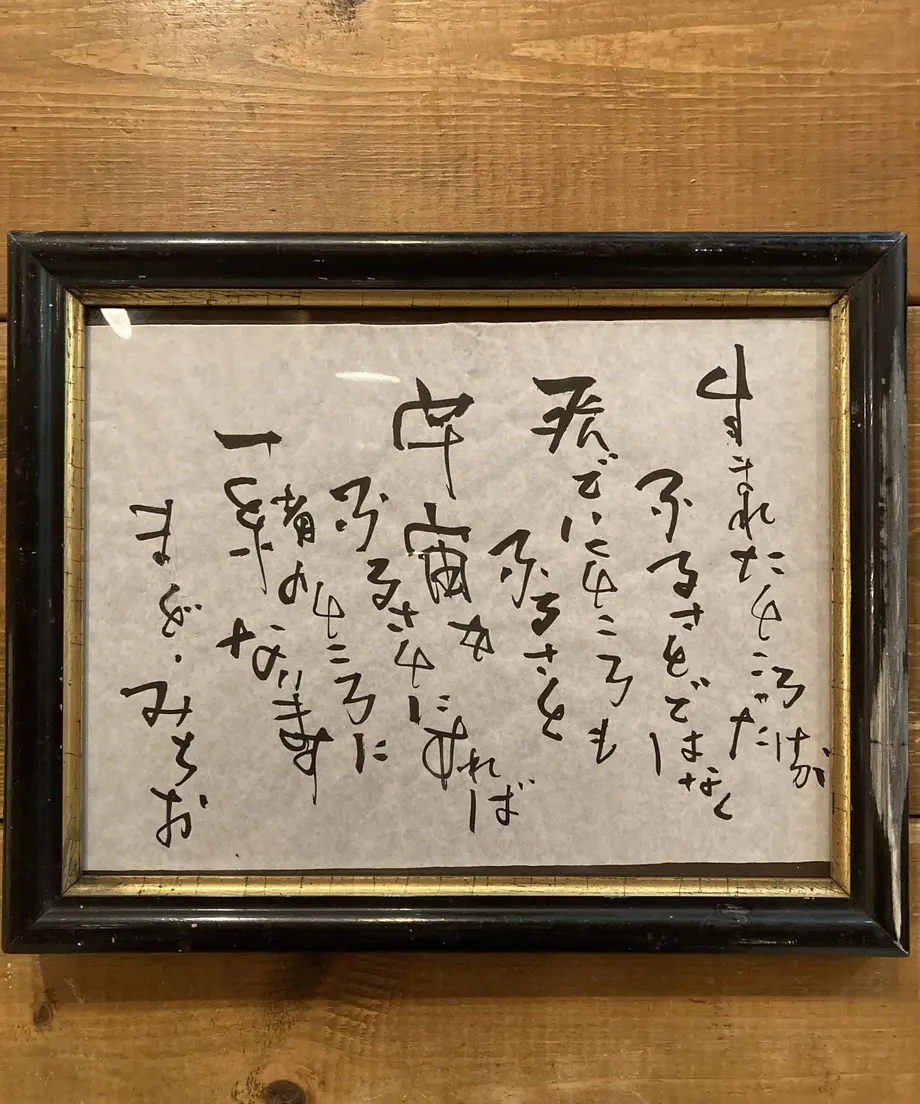 生まれたところだけが
ふるさとではなく
死んでいくところも
ふるさと
宇宙を
ふるさとにすれば
一緒のところに
なります
まど・みちお